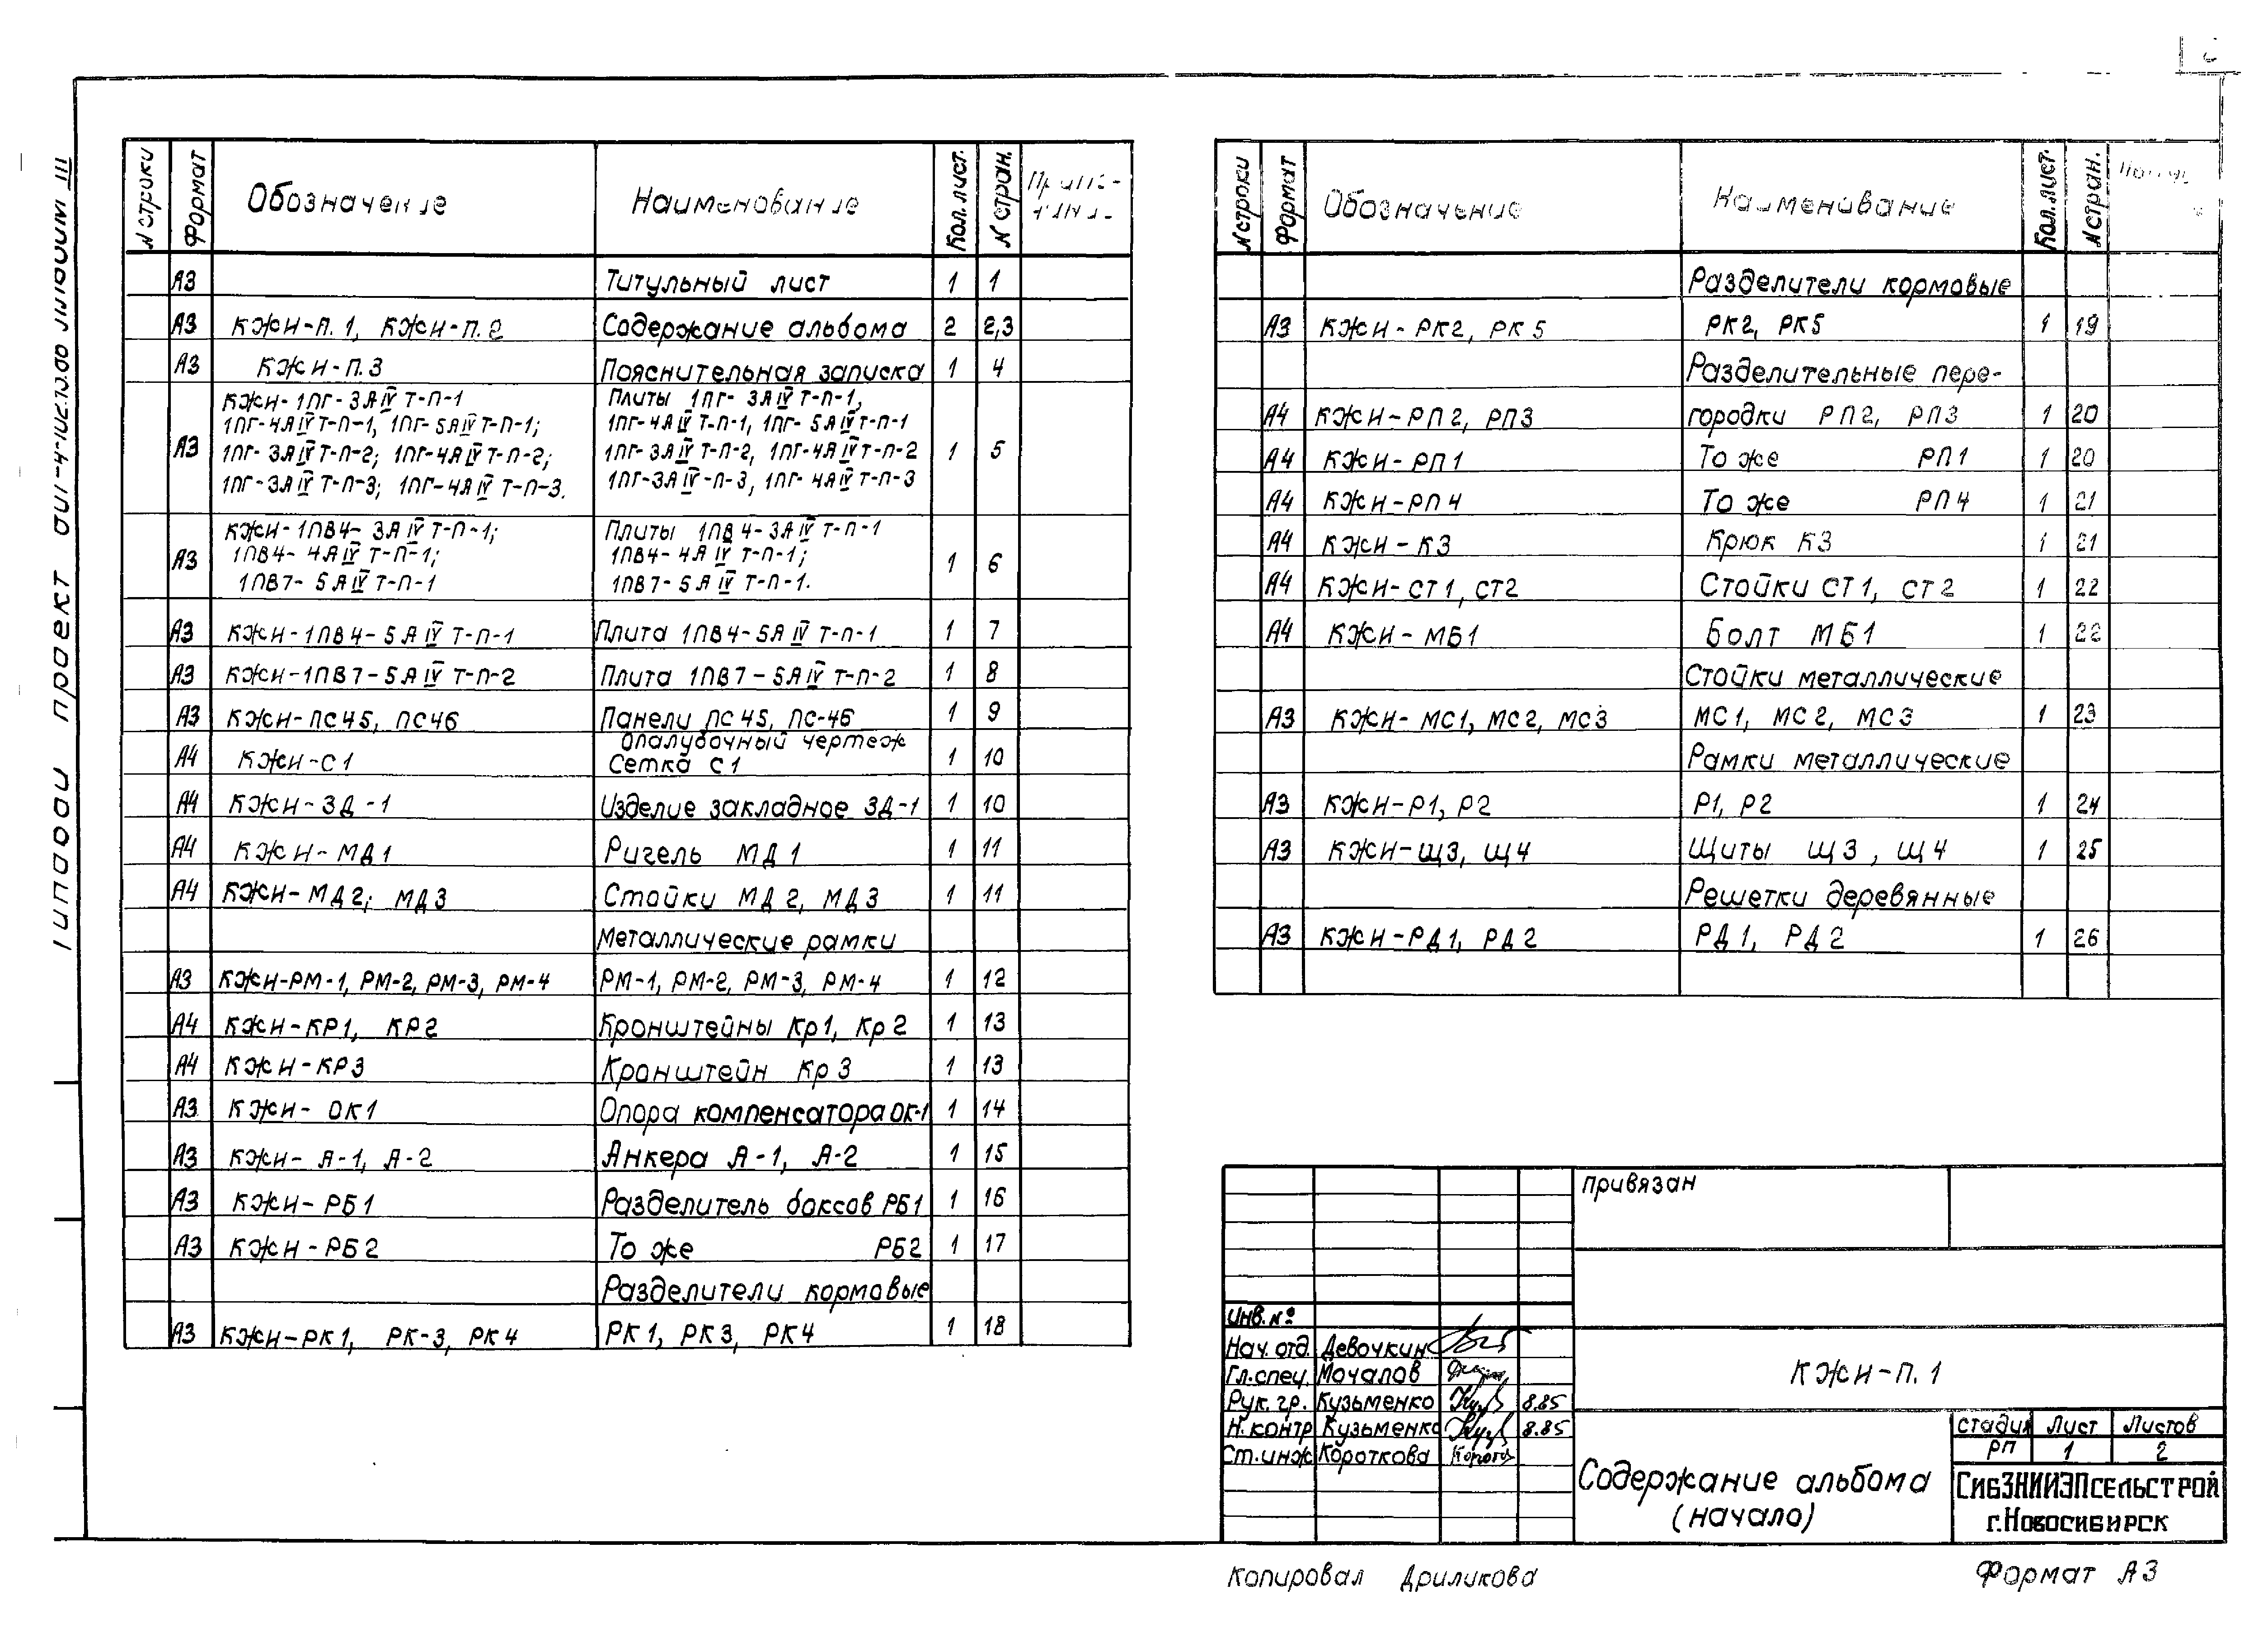 N строки Формат Обозначение Наименование Кол. лист. N стран.
А3 Титульный лист 1 1
А3 КЖИ-П.1, КЖИ-П.2 Содержание альбома 2 2,3
А3 КЖИ-П.3 Пояснительная записка 1 4
КЖИ-1ПГ-3АIVТ-П-1 Плиты 1ПГ-3АIVТ-П-1,
1ПГ-4АIVТ-П-1, 1ПГ-5АIVТ-П-1; 1ПГ-4АIVТ-П-1, 1ПГ-5АIVТ-П-1
А3 1ПГ-3АIVТ-П-2; 1ПГ-4АIVТ-П-2; 1ПГ-3АIVТ-П-2, 1ПГ-4АIVТ-П-2 1 5
1ПГ-3АIVТ-П-3; 1ПГ-4АIVТ-П-3. 1ПГ-3АIV-П-3, 1ПГ-4АIVТ-П-3
КЖИ-1ПВ4-3АIVТ-П-1; Плиты 1ПВ4-3АIVТ-П-1
А3 1ПВ4-4АIVТ-П-1; 1ПВ4-4АIVТ-П-1; 1 6
1ПВ7-5АIVТ-П-1 1ПВ7-5АIVТ-П-1.
А3 КЖИ-1ПВ4-5АIVТ-П-1 Плита 1ПВ4-5АIVТ-П-1 1 7
А3 КЖИ-1ПВ7-5АIVТ-П-2 Плита 1ПВ7-5АIVТ-П-2 1 8
А3 КЖИ-ПС45, ПС46 Панели ПС45, ПС-46 1 9
Опалубочный чертеж
А4 КЖИ-С1 Сетка С1 1 10
А4 КЖИ-ЗД-1 Изделие закладное ЗД-1 1 10
А4 КЖИ-МД1 Ригель МД1 1 11
А4 КЖИ-МД2; МД3 Стойки МД2, МД3 1 11
Металлические рамки
А3 КЖИ-РМ-1, РМ-2, РМ-3, РМ-4 РМ-1, РМ-2, РМ-3, РМ-4 1 12
А4 КЖИ-КР1, КР2 Кронштейны Кр1, Кр2 1 13
А4 КЖИ-КР3 Кронштейн Кр3 1 13
А3 КЖИ-ОК1 Опора компенсатора ОК-1 1 14
А3 КЖИ-А-1, А-2 Анкера А-1, А-2 1 15
А3 КЖИ-РБ1 Разделитель боксов РБ1 1 16
А3 КЖИ-РБ2 То же РБ2 1 17
Разделители кормовые
А3 КЖИ-РК1, РК-3, РК4 РК1, РК3, РК4 1 18
N строки Формат Обозначение Наименование Кол. лист. N стран.
Разделители кормовые
А3 КЖИ-РК2, РК5 РК2, РК5 1 19
Разделительные пере-
А4 КЖИ-РП2, РП3 городки РП2, РП3 1 20
А4 КЖИ-РП1 То же РП1 1 20
А4 КЖИ-РП4 То же РП4 1 21
А4 КЖИ-К3 Крюк К3 1 21
А4 КЖИ-СТ1, СТ2 Стойки СТ1, СТ2 1 22
А4 КЖИ-МБ1 Болт МБ1 1 22
Стойки металлические
А3 КЖИ-МС1, МС2, МС3 МС1, МС2, МС3 1 23
Рамки металлические
А3 КЖИ-Р1, Р2 Р1, Р2 1 24
А3 КЖИ-Щ3, Щ4 Щиты Щ3, Щ4 1 25
Решетки деревянные
А3 КЖИ-РД1, РД2 РД1, РД2 1 26
Привязан
Инв. №
Нач. отд. Девочкин
Гл. спец. Мочалов
Рук. гр. Кузьменко 8.85
Н. контр Кузьменко 8.85
Ст. инж Короткова
КЖИ-П.1
Содержание альбома
(начало)
стадия Лист Листов
РП 1 2
СибЗНИИЭПсельстрой
г. Новосибирск
Копировал Дриликова
Формат А3